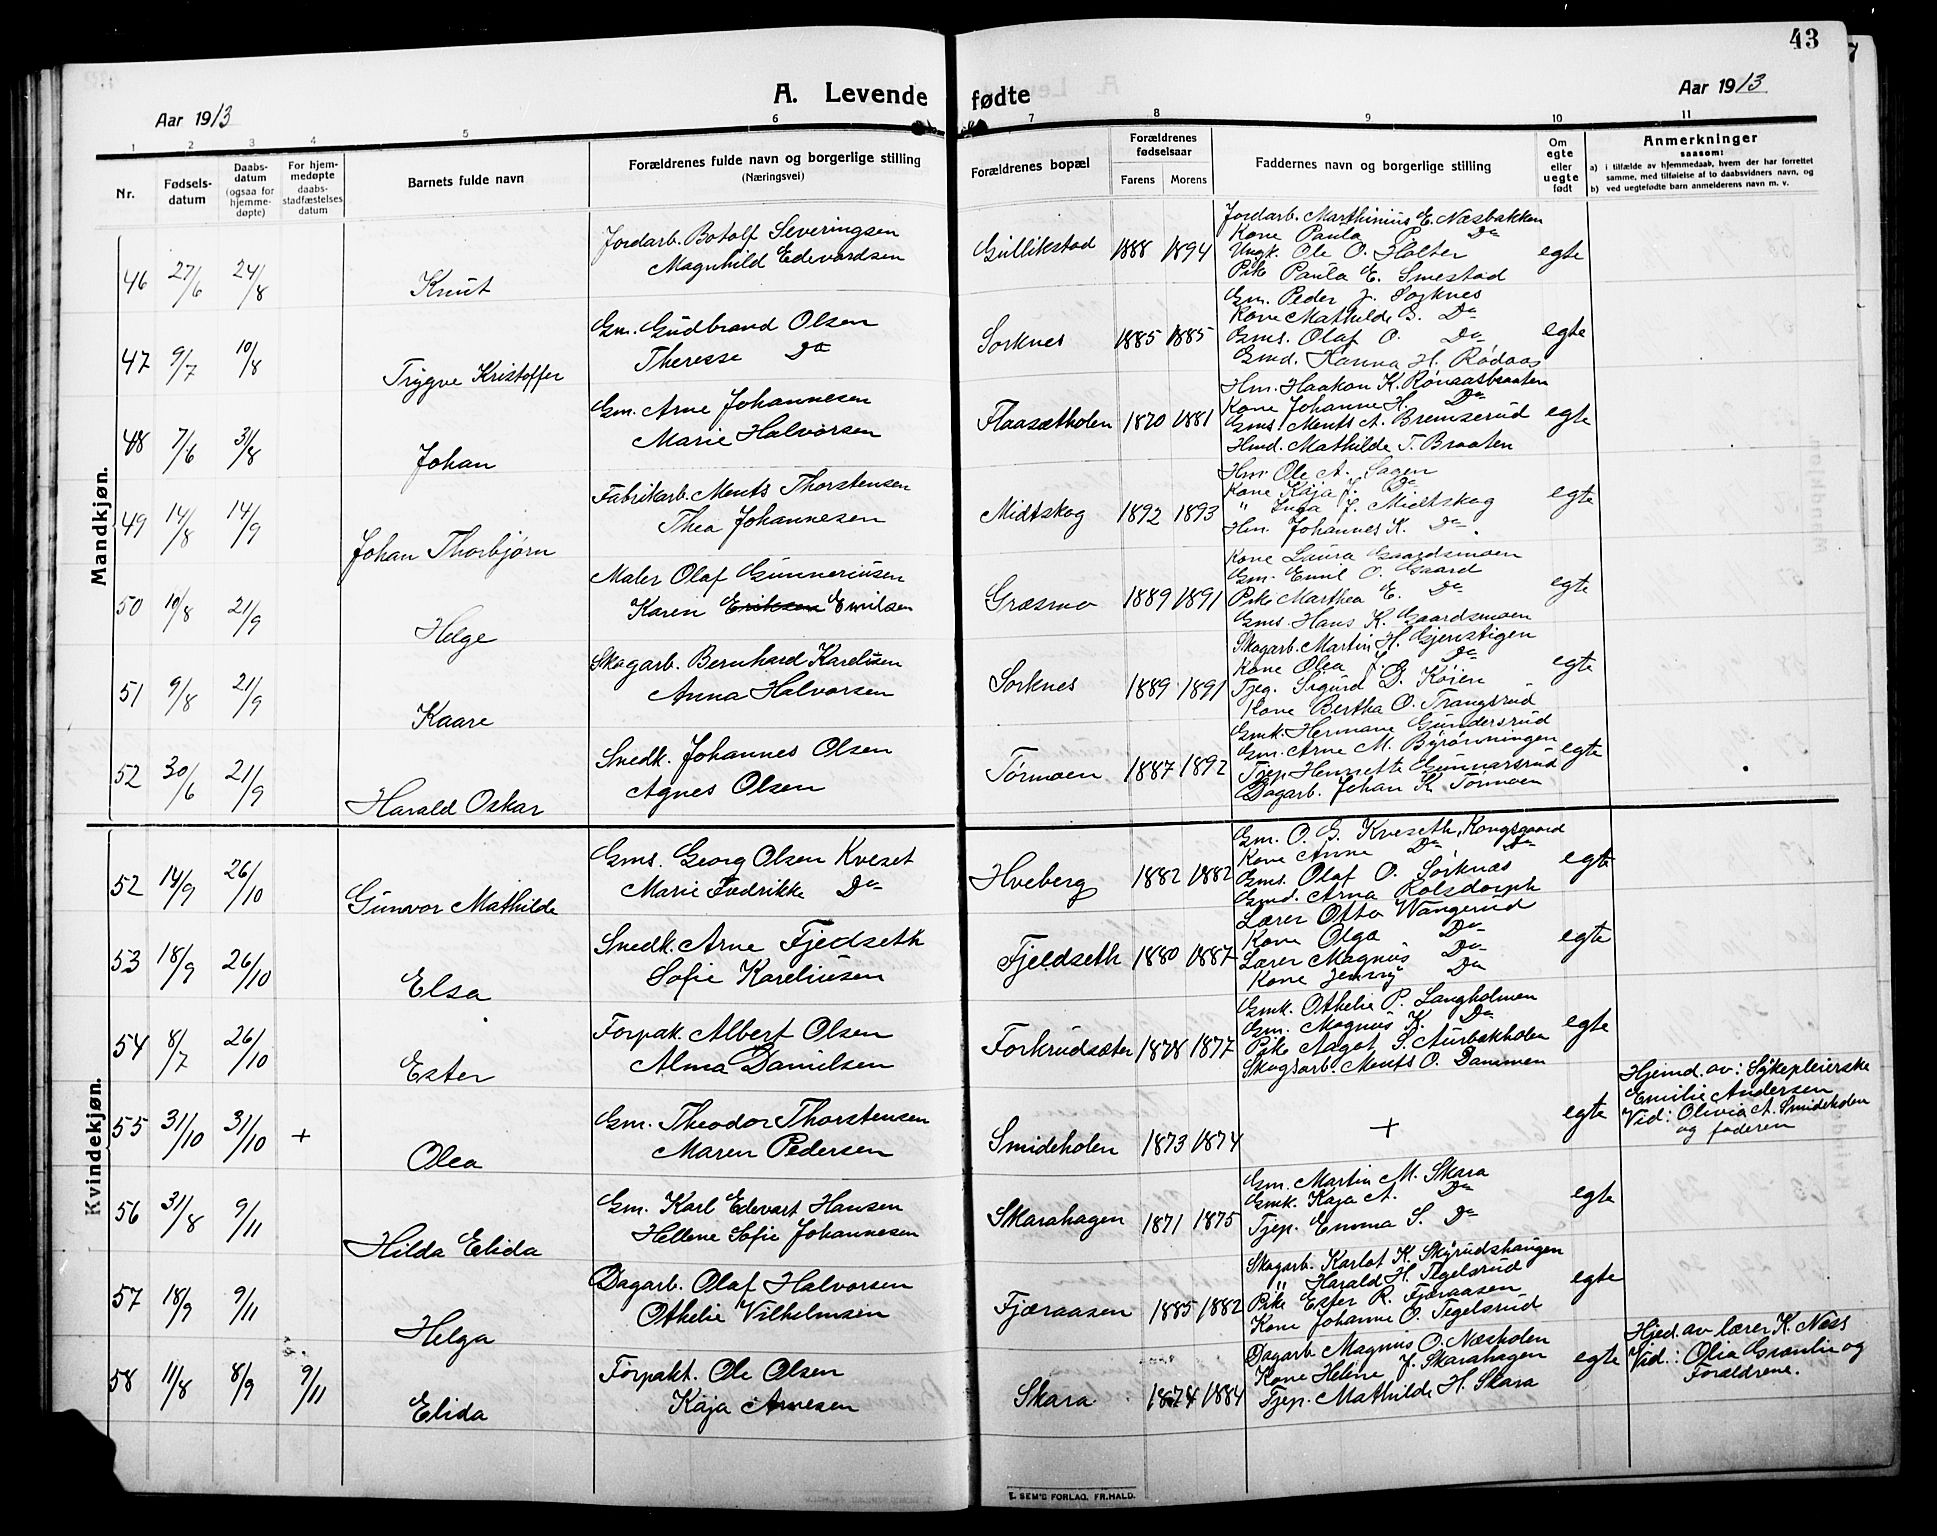 43
A. Levende fødte
Aar 1913
Aar 1913
1 2 3 4 5 6 7 8 9 10 11
Nr.
Fødsels-
datum
Daabs-
datum
(ogsaa for
hjemme-
døpte)
For hjem-
medøpte
daabs-
stadfæstelses
datum
Barnets fulde navn
Forældrenes fulde navn og borgerlige stilling
(Næringsvei)
Forældrenes bopæl
Forældrenes
fødselsaar
Farens Morens
Faddernes navn og borgerlige stilling
Om
egte
eller
uegte
født
Anmerkninger
saasom:
a) i tilfælde av hjemmedaab, hvem der har forrettet
samme, med tilføielse af to daabsvidners navn, og
b) ved uegtefødte barn anmelderens navn m. v.
Mandkjøn.
46 27/6 24/8 Knut
Jordarb. Botolf Severingsen
Magnhild Edevardsen
Gullikstad 1888 1894
Jordarb. Marthinius E. Næsbakken
Kone Paula P. Do
Ungk. Ole O. Holter
Pike Paula E. Smestad
egte
47 9/7 10/8 Trygve Kristoffer
Gm. Gudbrand Olsen
Therese Do
Sorknes 1885 1885
Gm. Peder J. Sorknes
Kone Mathilde G. Do
Gms. Olaf O. Do
Gmd. Hanna H. Rødaas
egte
48 7/6 31/8 Johan
Gm. Arne Johannesen
Marie Halvorsen
Flaasætholen 1870 1881
Hm. Haakon K. Rønaasbraaten
Kone Johanne H. Do
Gms. Ments A. Bremserud
Hmd. Mathilde T. Braaten
egte
49 14/8 14/9 Johan Thorbjørn
Fabrikarb. Ments Thorstensen
Thea Johannesen
Midtskog 1892 1893
Hm. Ole A. Sagen
Kone Kaja J. Do
" Inga J. Midtskog
Hm. Johannes K. Do
egte
50 10/8 21/9 Helge
Maler Olaf Gunneriusen
Karen Eriksen Emilsen
Græsmo 1889 1891
Kone Laura Gaardsmoen
Gm. Emil O. Gaard
Pike Marthea E. Do
Gms. Hans K. Gaardsmoen
egte
51 9/8 21/9 Kaare
Skogarb. Bernhard Karelisen
Anna Halvorsen
Sorknes 1889 1891
Skogarb. Martin H. Gjenstigen
Kone Olea J. Do
Tjeg. Sigurd G. Køien
Kone Bertha O. Trangsrud
egte
52 30/6 21/9 Harald Oskar
Snedk. Johannes Olsen
Agnes Olsen
Tørmoen 1887 1892
Gmk. Hermane Gundersrud
Gm. Arne M. Byrønningen
Tjep. Hennette Gunnarsrud
Dagarb. Johan K. Tørmoen
egte
Kvindekjøn.
52 14/9 26/10 Gunvor Mathilde
Gms. Georg Olsen Kveset
Marie Fredrikke Do
Hveberg 1882 1882
Gm. O. G. Kveseth, Kongsgaard
Kone Anne Do Do
Gms. Olaf O. Sørknæs
Gmd. Arna Rolsdorph
egte
53 18/9 26/10 Elsa
Snedk. Arne Fjedseth
Sofie Kareliusen
Fjeldseth 1880 1887
Lærer Otto Wangerud
Kone Olga Do
Lærer Magnus Do
Kone Jenny Do
egte
54 8/7 26/10 Ester
Forpak. Albert Olsen
Alma Danielsen
Forkrudsæter 1878 1877
Gmk. Othelie P. Langholmen
Gm. Magnus K. Do
Pike Aagot S. Aurbakholen
Skogsarb. Ments O. Dammen
egte
55 31/10 31/10 + Olea
Gm. Theodor Thorstensen
Maren Pedersen
Smideholen 1873 1874
+
egte
Hjemd. av: Sykepleierske
Emilie Andersen
Vid: Olivia A. Smideholen
og faderen
56 31/8 9/11 Hilda Elida
Gm. Karl Edevart Hansen
Hellene Sofie Johannesen
Skarahagen 1871 1875
Gm. Martin M. Skara
Gmk. Kaja A. Do
Tjep. Emma S. Do
egte
57 18/9 9/11 Helga
Dagarb. Olaf Halvorsen
Othelie Vilhelmsen
Fjæraasen 1885 1882
Skogarb. Karlot K. Skyrudshaugen
" Harald H. Tegelsrud
Pike Ester R. Fjæraasen
Kone Johanne O. Tegelsrud
egte
58 11/8 8/9 9/11 Elida
Forpakt. Ole Olsen
Kaja Arnesen
Skara 1874 1884
Dagarb. Magnus O. Næsholen
Kone Helene J. Skarahagen
Tjep. Mathilde H. Skara
egte
Hjed. av lærer K. Næss
Vid.: Olea Grønlie og
Forældrene.
E. SEM'S FORLAG, FR.HALD.